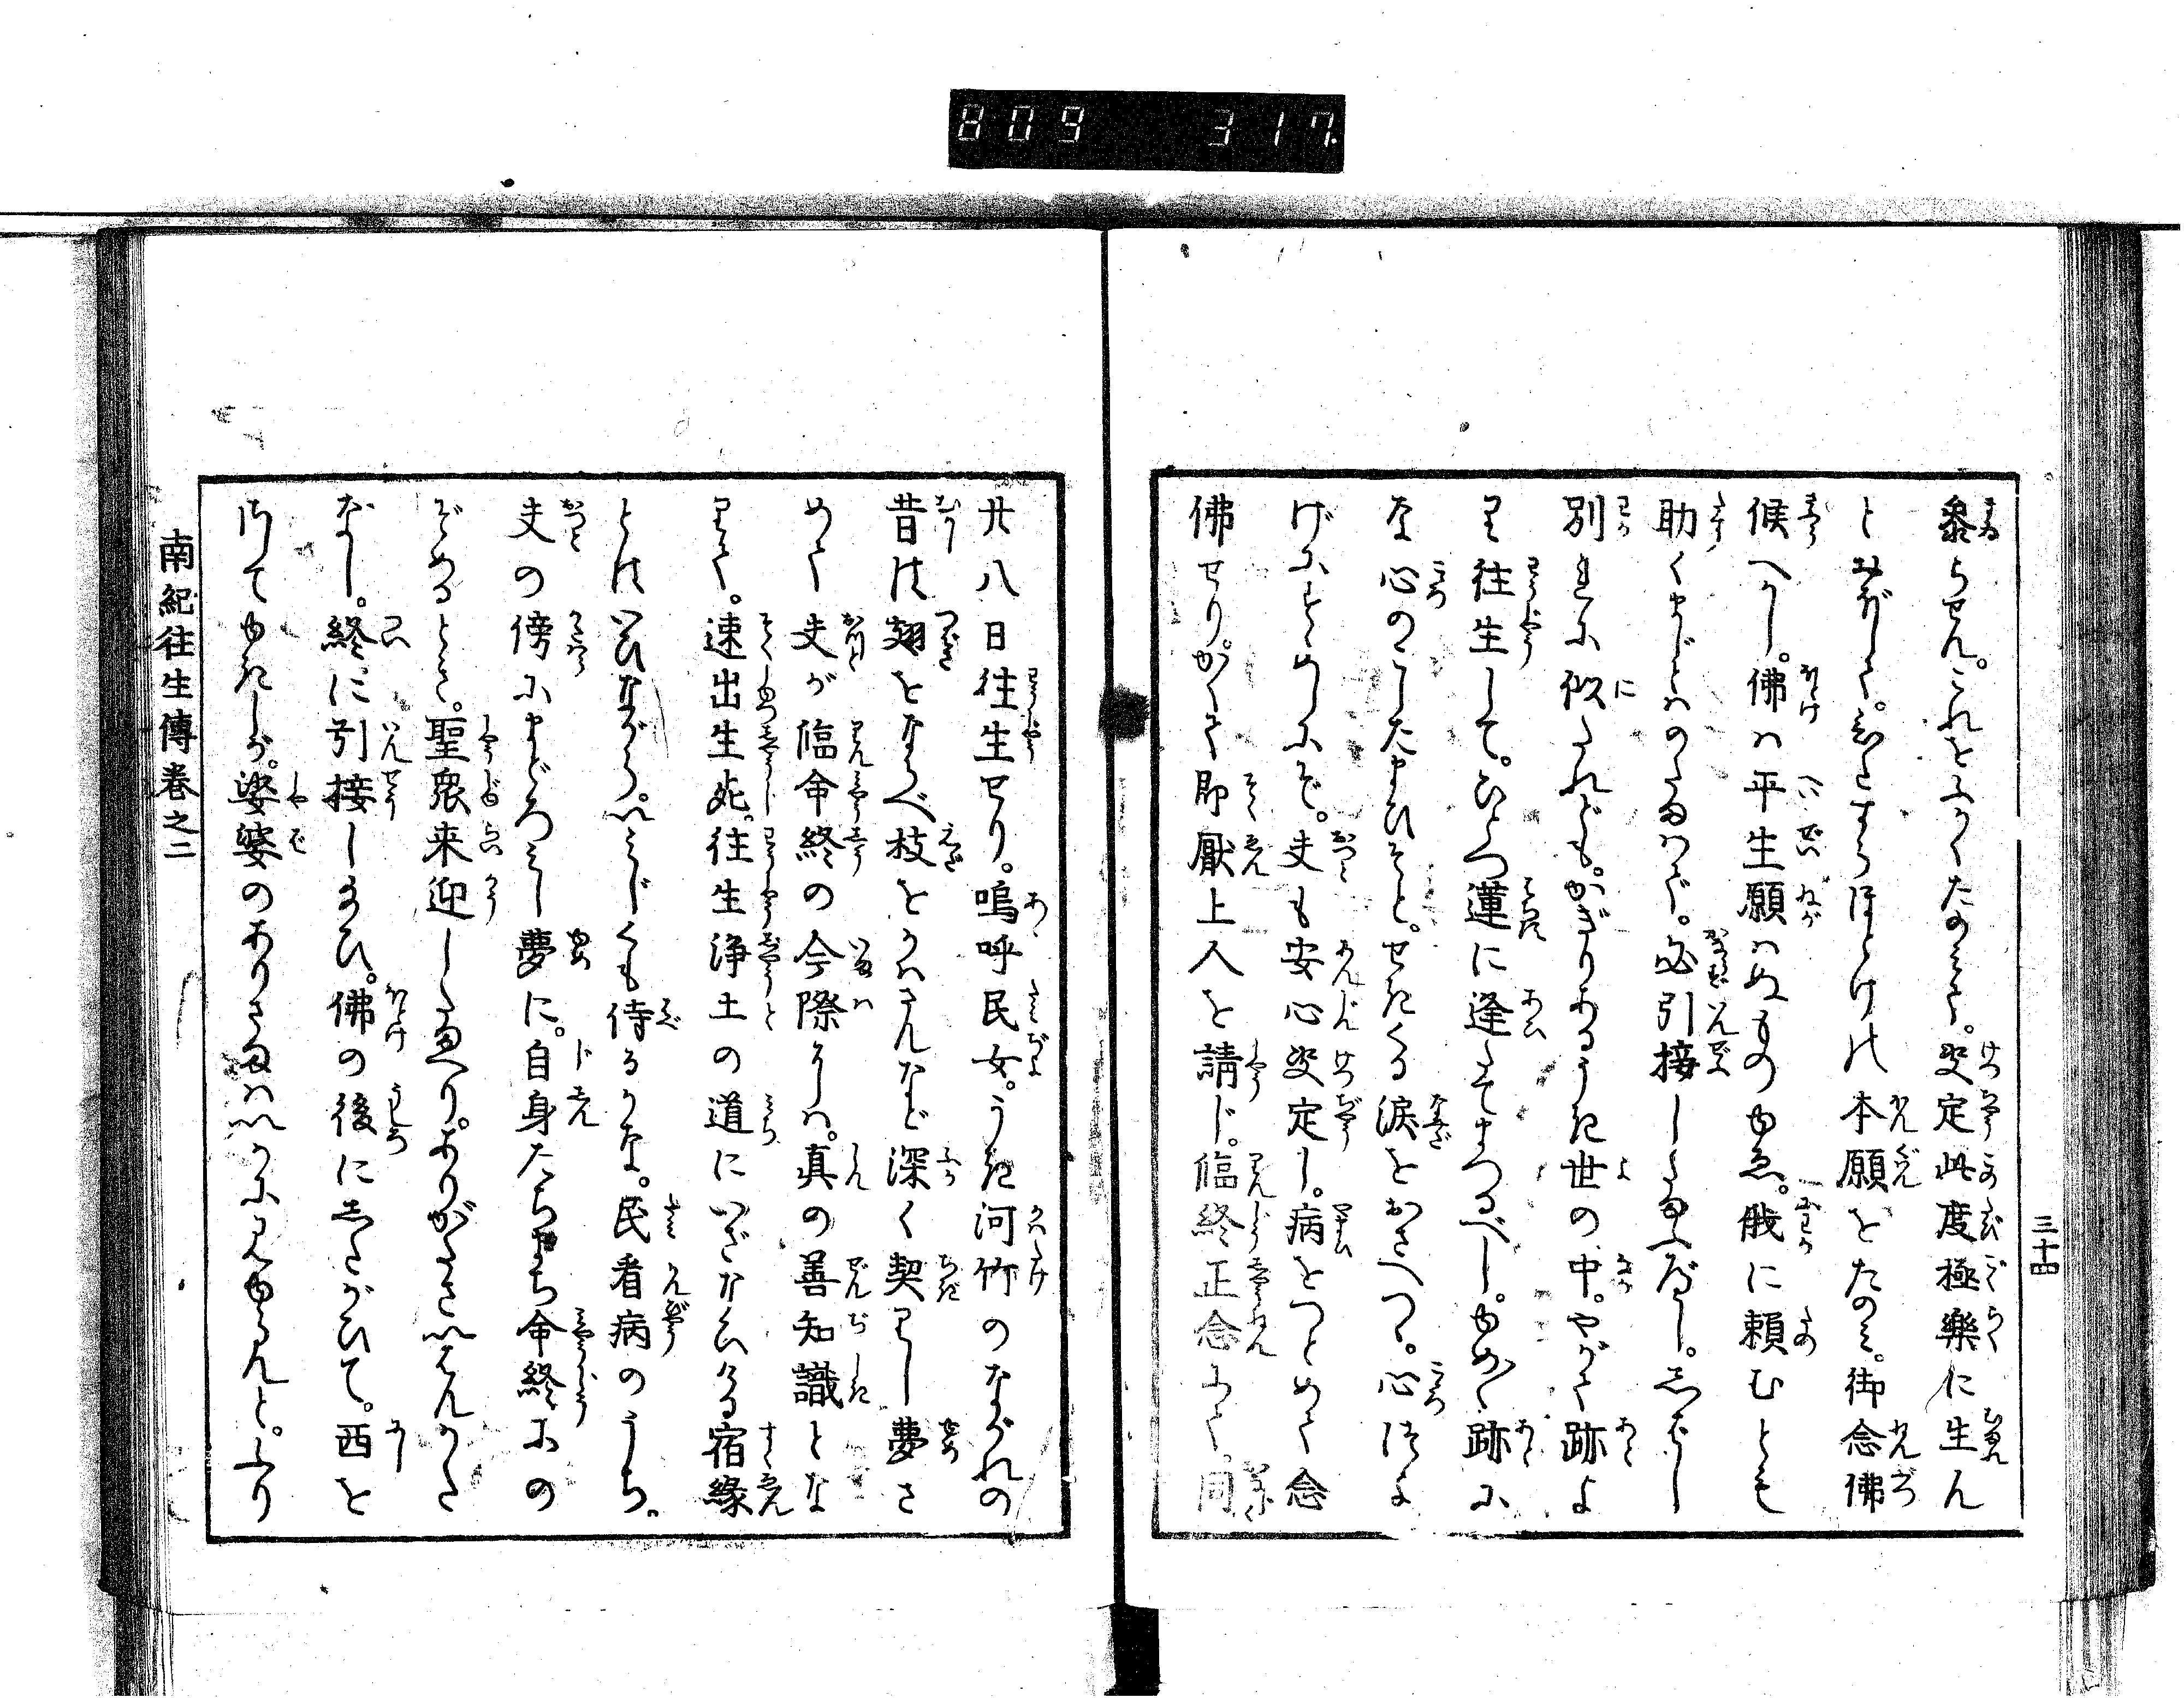 809 317.
三十四
参らせん。これをふかくたのみて。决定此度極樂に生ん
とおぼしく。みなすらほとけの本願をたのみ。御念佛
候へかし。佛ハ平生願ハぬものゆゑ。俄に頼むとも
助くまじとハのたまハず。必引接したまふべし。しばし
別れに似たれども。かぎりあるうき世の中。やがて跡よ
り往生して。ひとつ蓮に逢たてまつるべし。ゆめ〳〵跡に
な心のこしたまひそと。せきくる涙をおさへつつ。心づよ
げにすすめしにぞ。夫も安心决定し。病をつとめて念
佛せり。かくて即厭上人を請じ。臨終正念にて。同
廿八日往生せり。嗚呼民女。うき河竹のながれの
昔は翅をならべ枝をかハさんなど深く契りし夢さ
めて夫が臨命終の今際にハ。真の善知識とな
りて。速出生死。往生淨土の道にいざなひける宿緣
とはいひながら。いみじくも侍るかな。民看病のうち。
夫の傍にまどろみし夢に。自身たちまち命終にの
ぞめるとき。聖衆来迎したまへり。ありがたさいはんかた
なし。終に引接し給ひ。佛の後にしたがひて。西を
さしてゆきしが。娑婆のありさまハいかに見ゆらんと。ふり
南紀往生傳卷之二